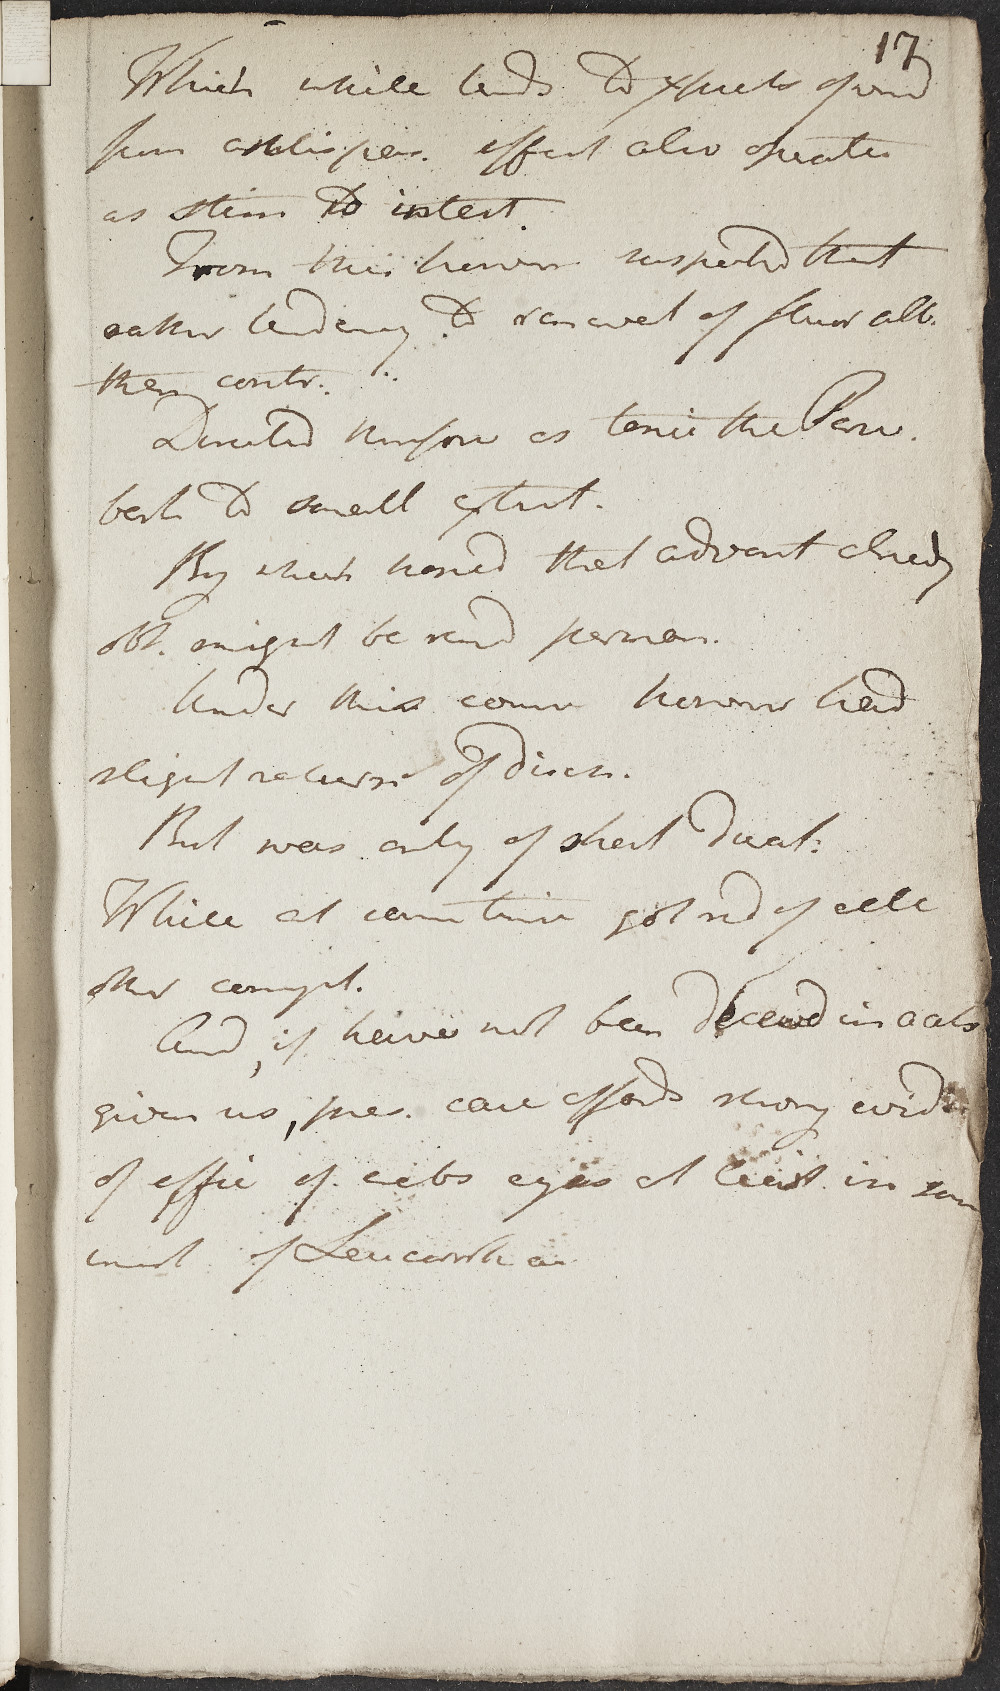 17
Which while tends to expuls of wind
from antispas. effect also operates
as stim to intest.
From this however suspected that
rather tendency to renewal of fluor alb.
then contr.
Directed therefore as tonic the Peru.
bark to small extent.
By which hoped that advant already
obt. might be rend perman.
Under this course however had
slight return of disch.
But was only of short durat:
While at same time got rid of all
other compt.
And, if have not been deceived in acts
given us, pres. case affords strong evid
of effic of at least in som
inst of Leucorrhea